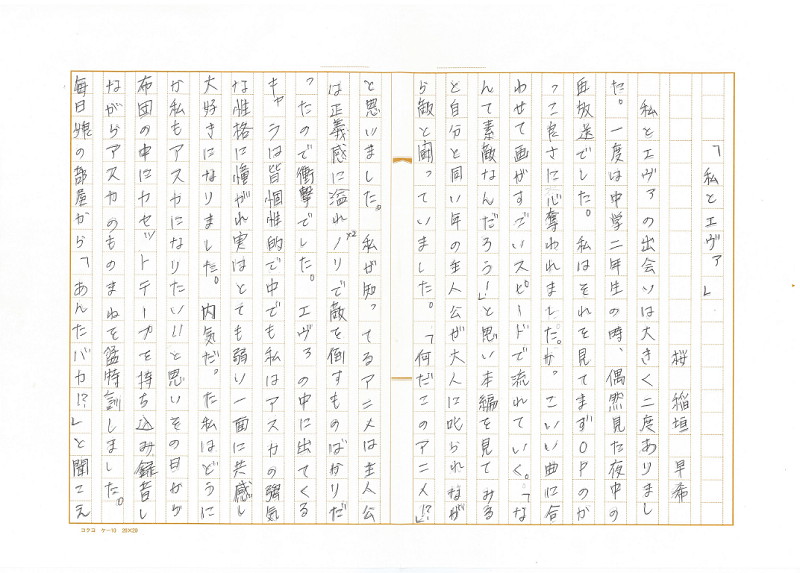 「私とエヴァ」
桜 稲垣 早希
私とエヴァの出会いは大きく二度ありまし
た。一度は中学二年生の時、偶然見た夜中の
再放送でした。私はそれを見てまずOPのか
っこ良さに心奪われました。かっこいい曲に合
わせて画がすごいスピードで流れていく。「な
んて素敵なんだろう！」と思い本編を見てみる
と自分と同い年の主人公が大人に叱られなが
ら敵と闘っていました。「何だこのアニメ!?」
と思いました。私が知ってるアニメは主人公
は正義感に溢れノリで敵を倒すものばかりだ
ったので衝撃でした。エヴァの中に出てくる
キャラは皆個性的で中でも私はアスカの強気
な性格に憧がれ実はとても弱い一面に共感し
大好きになりました。内気だった私はどうに
か私もアスカになりたい!!と思いその日から
布団の中にカセットテープを持ち込み録音し
ながらアスカのものまねを猛特訓しました。
毎日娘の部屋から「あんたバカ!?」と聞こえ
コクヨ ケ-10 20×20